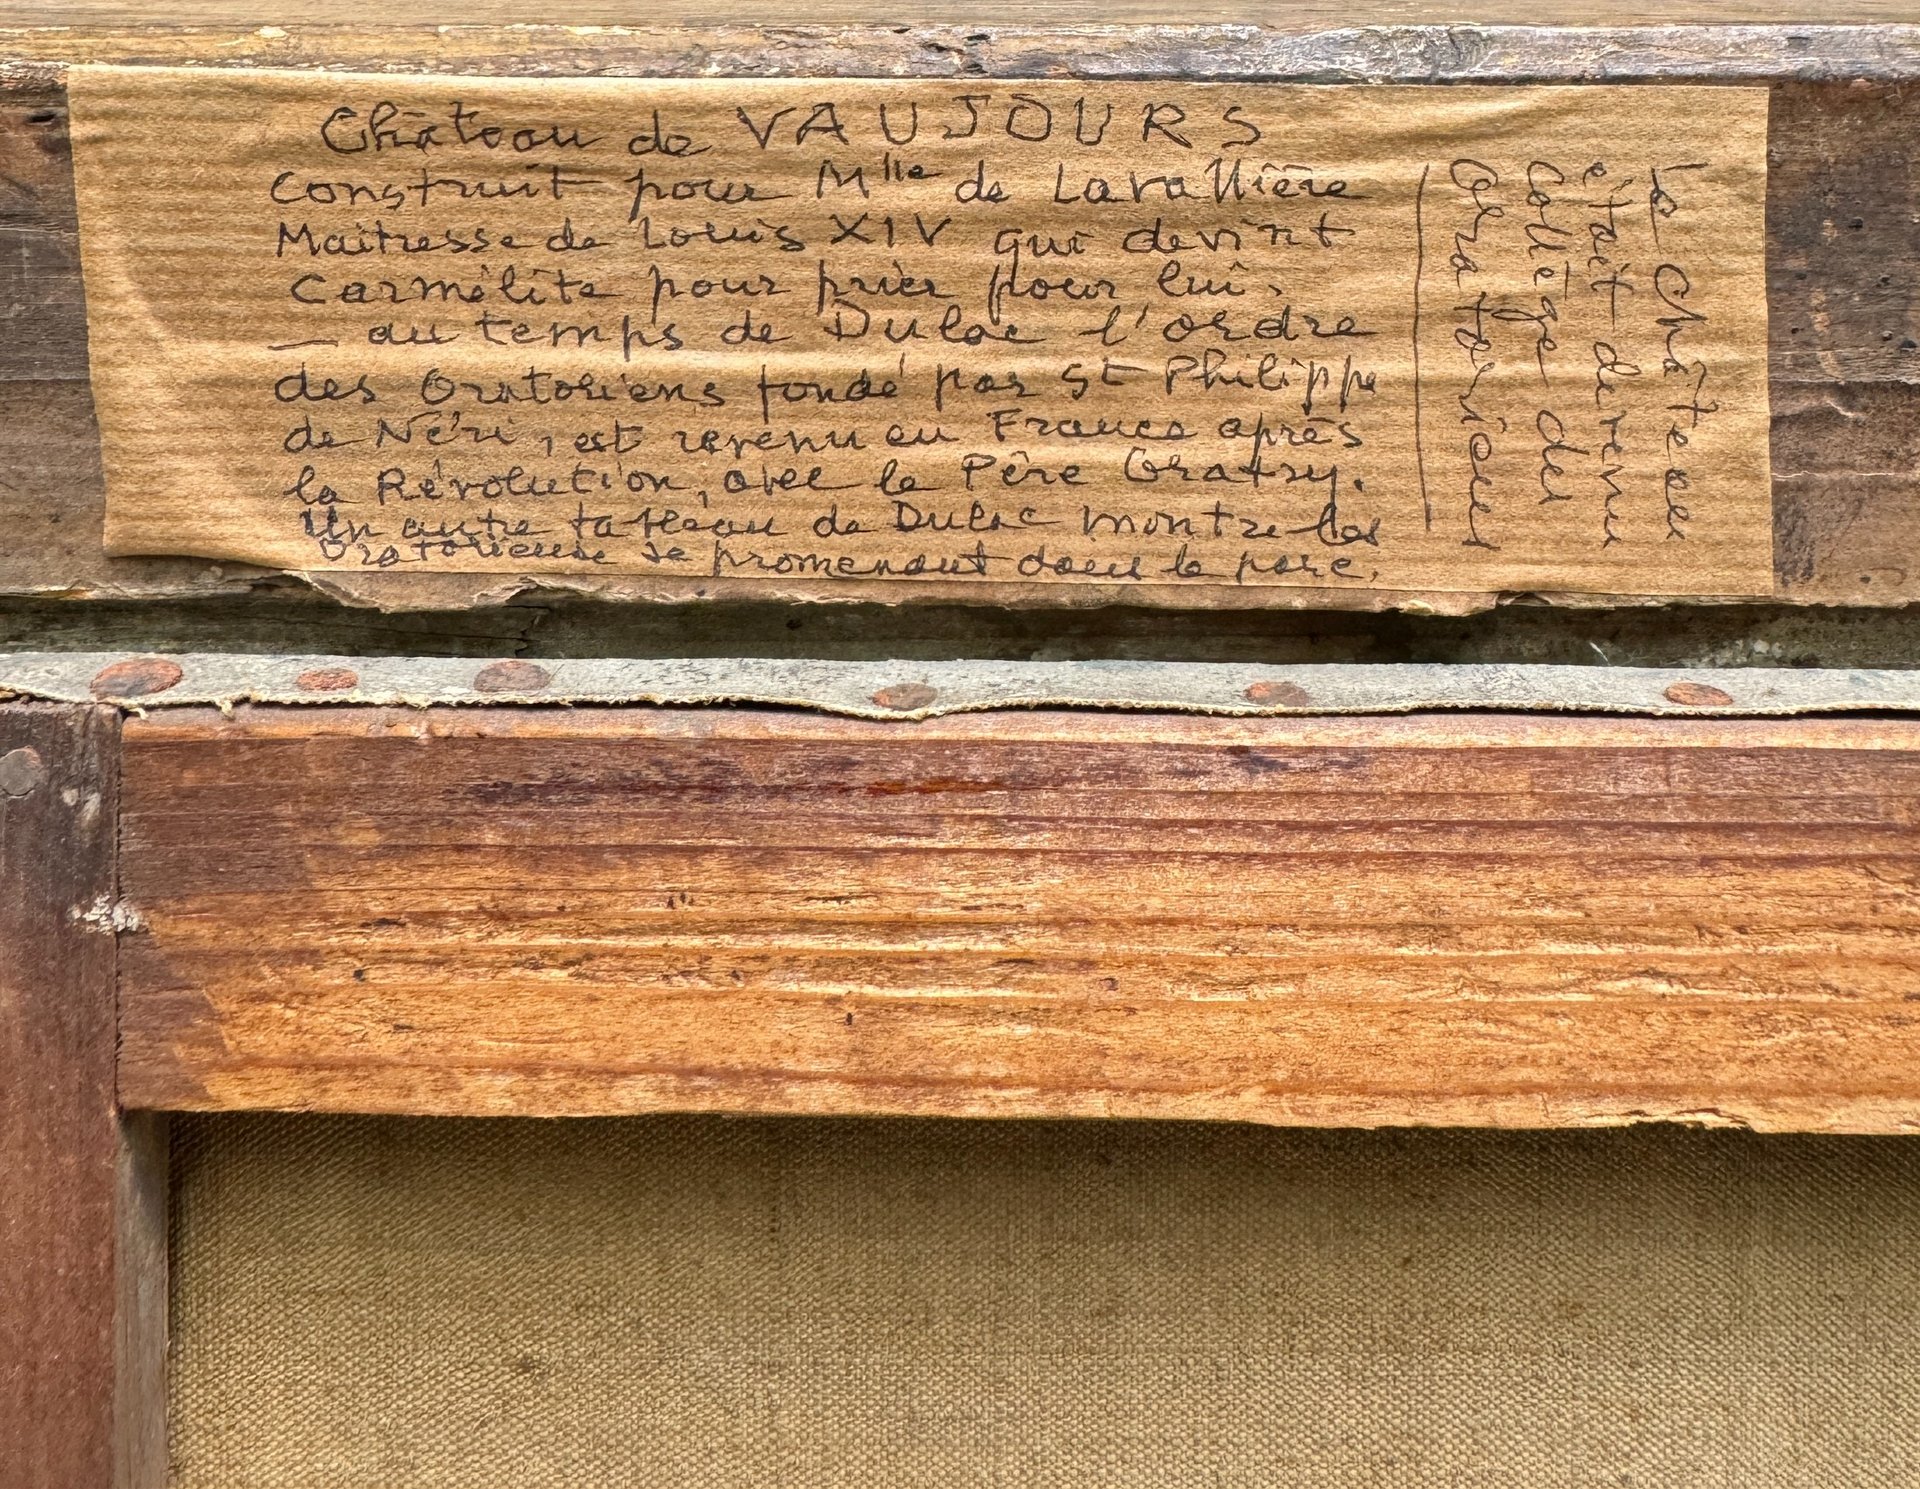 Château de VAUJOURS
construit pour Mlle de Lavallière
Maitresse de Louis XIV qui devint
Carmélite pour prier pour lui.
— au temps de Dulac l'ordre
des Oratoriens fondé par St Philippe
de Néri, est revenu en France après
la Révolution, avec le Père Gratry.
Un autre tableau de Dulac montre les
Oratoriens se promenant dans le parc.
Le Château
était devenu
Collège des
Oratoriens